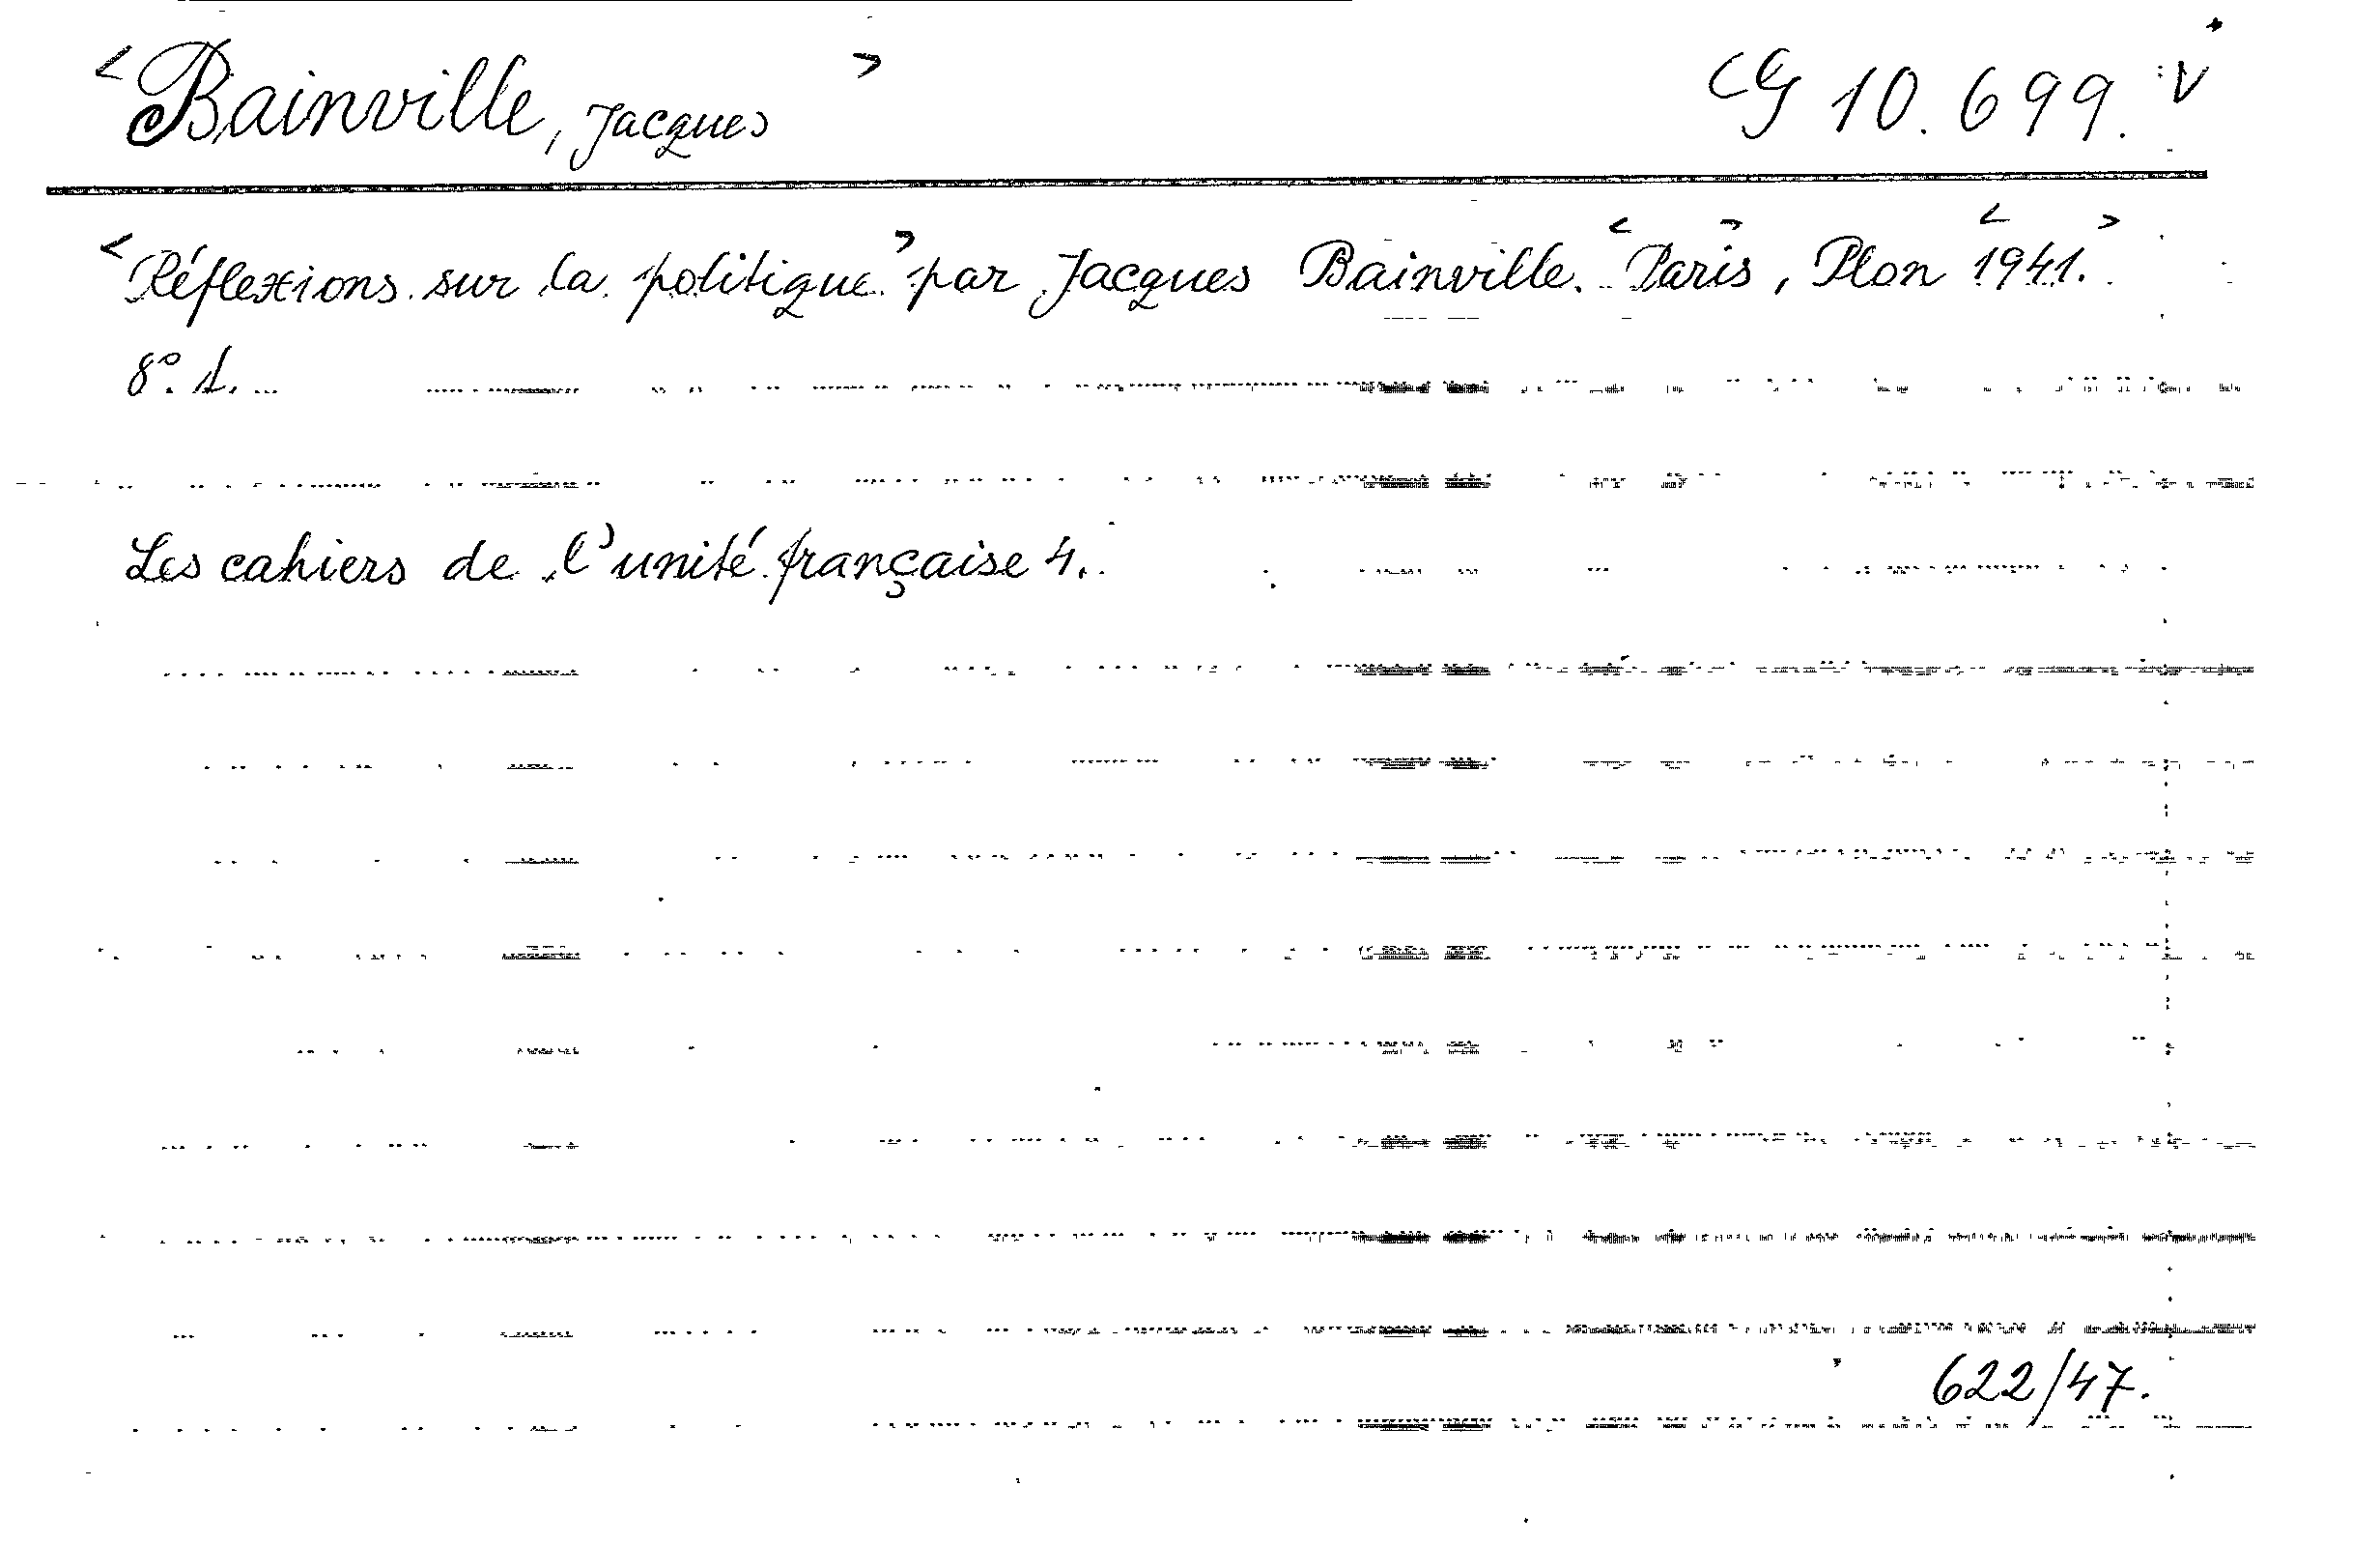 <Bainville, Jacques> CG 10.699. V
<Réflexions sur la politique> par Jacques Bainville. <Paris>, Plon <1941.>
8°. 1.
Les cahiers de l'unité française 4.
622/47.